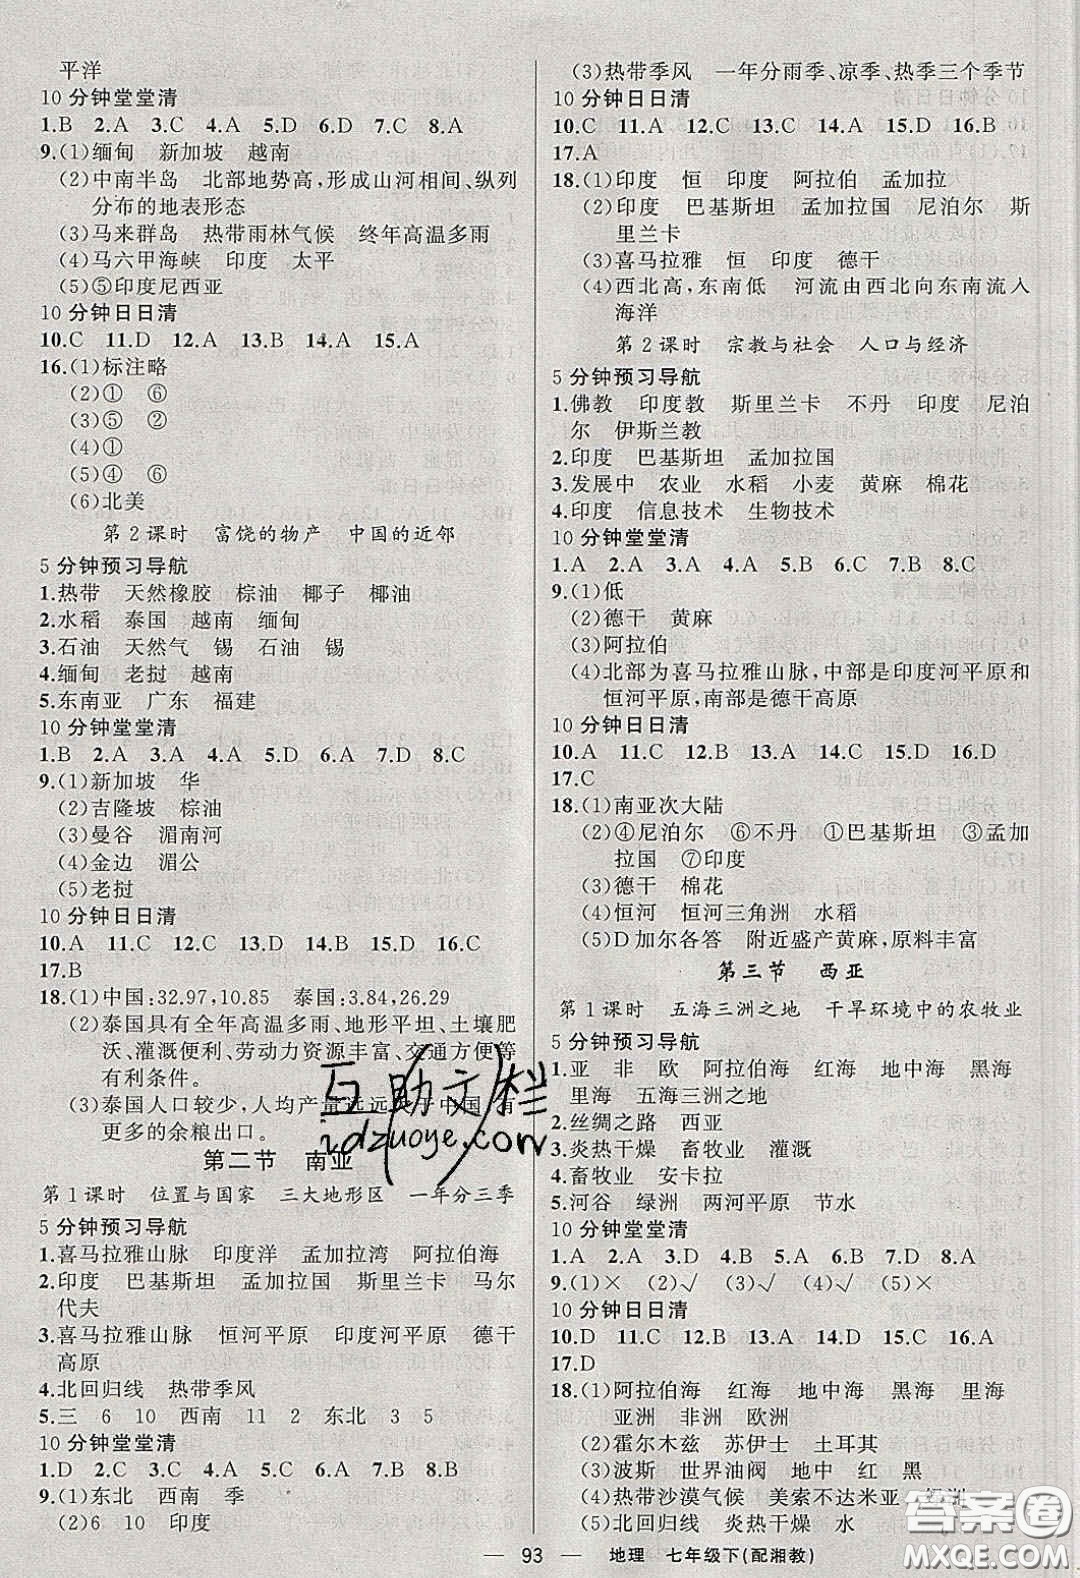 平洋
10 分钟堂堂清
1.B 2.A 3.C 4.A 5.D 6.D 7.C 8.A
9.(1)缅甸 新加坡 越南
(2)中南半岛 北部地势高,形成山河相间、纵列
分布的地表形态
(3)马来群岛 热带雨林气候 终年高温多雨
(4)马六甲海峡 印度 太平
(5)⑤印度尼西亚
10 分钟日日清
10.C 11.D 12.A 13.B 14.A 15.A
16.(1)标注略
(2)① ⑥
(3)⑤ ②
(4)①
(5)④ ⑥
(6)北美
第2课时 富饶的物产 中国的近邻
5 分钟预习导航
1.热带 天然橡胶 棕油 椰子 椰油
2.水稻 泰国 越南 缅甸
3.石油 天然气 锡 石油 锡
4.缅甸 老挝 越南
5.东南亚 广东 福建
10 分钟堂堂清
1.B 2.A 3.A 4.A 5.D 6.A 7.D 8.C
9.(1)新加坡 华
(2)吉隆坡 棕油
(3)曼谷 湄南河
(4)金边 湄公
(5)老挝
10 分钟日日清
10.A 11.C 12.C 13.D 14.B 15.D 16.C
17.B
18.(1)中国:32.97,10.85 泰国:3.84,26.29
(2)泰国具有全年高温多雨、地形平坦、土壤肥
沃、灌溉便利、劳动力资源丰富、交通方便等
有利条件。
(3)泰国人口较少,人均产量远远大于中国,有
更多的余粮出口。
第二节 南亚
第1课时 位置与国家 三大地形区 一年分三季
5 分钟预习导航
1.喜马拉雅山脉 印度洋 孟加拉湾 阿拉伯海
2.印度 巴基斯坦 孟加拉国 斯里兰卡 马尔
代夫
3.喜马拉雅山脉 恒河平原 印度河平原 德干
高原
4.北回归线 热带季风
5.三 6 10 西南 11 2 东北 3 5
10 分钟堂堂清
1.D 2.C 3.C 4.A 5.B 6.B 7.B 8.B
9.(1)东北 西南 季
(2)6 10 印度
(3)热带季风 一年分雨季、凉季、热季三个季节
10 分钟日日清
10.C 11.A 12.C 13.C 14.A 15.D 16.B
17.A
18.(1)印度 恒 印度 阿拉伯 孟加拉
(2)印度 巴基斯坦 孟加拉国 尼泊尔 斯
里兰卡
(3)喜马拉雅 恒 印度 德干
(4)西北高,东南低 河流由西北向东南流入
海洋
第2课时 宗教与社会 人口与经济
5 分钟预习导航
1.佛教 印度教 斯里兰卡 不丹 印度 尼泊
尔 伊斯兰教
2.印度 巴基斯坦 孟加拉国
3.发展中 农业 水稻 小麦 黄麻 棉花
4.印度 信息技术 生物技术
10 分钟堂堂清
1.A 2.B 3.A 4.A 5.B 6.B 7.C 8.C
9.(1)低
(2)德干 黄麻
(3)阿拉伯
(4)北部为喜马拉雅山脉,中部是印度河平原和
恒河平原,南部是德干高原
10 分钟日日清
10.A 11.C 12.B 13.A 14.C 15.D 16.D
17.C
18.(1)南亚次大陆
(2)④尼泊尔 ⑥不丹 ①巴基斯坦 ③孟加
拉国 ⑦印度
(3)德干 棉花
(4)恒河 恒河三角洲 水稻
(5)D加尔各答 附近盛产黄麻,原料丰富
第三节 西亚
第1课时 五海三洲之地 干旱环境中的农牧业
5 分钟预习导航
1.亚 非 欧 阿拉伯海 红海 地中海 黑海
里海 五海三洲之地
2.丝绸之路 西亚
3.炎热干燥 畜牧业 灌溉
4.畜牧业 安卡拉
5.河谷 绿洲 两河平原 节水
10 分钟堂堂清
1.A 2.A 3.D 4.B 5.A 6.B 7.D 8.A
9.(1)× (2)√ (3)√ (4)√ (5)×
10 分钟日日清
10.D 11.C 12.B 13.D 14.C 15.C 16.A
17.D
18.(1)阿拉伯海 红海 地中海 黑海 里海
亚洲 非洲 欧洲
(2)霍尔木兹 苏伊士 土耳其
(3)波斯 世界油阀 地中 红 黑
(4)热带沙漠气候 美索不达米亚
(5)北回归线 炎热干燥
— 93 — 地理 七年级下(配湘教)
互助文栏
答案圈
MXQE.COM